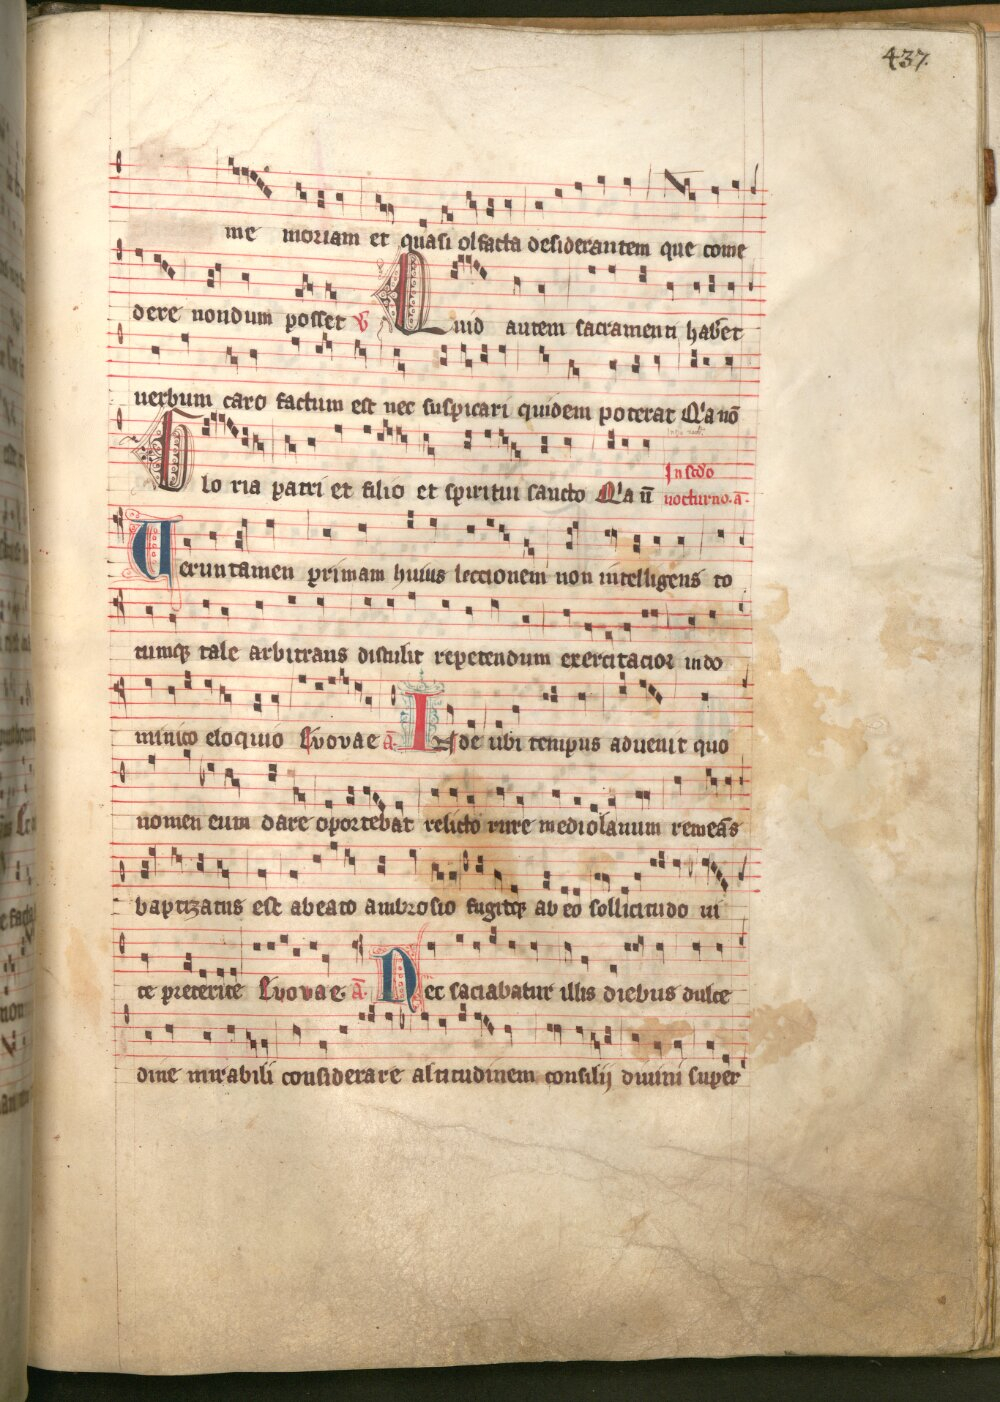 437.
me moriam et quasi olfacta desiderantem que come
dere nondum posset ℣ Quid autem sacramenti hab̄et
uerbum caro factum est nec suspicari quidem poterat Q'a nō
Glo ria patri et filio et spiritui sancto Q'a n̄ In scdo
nocturno. a̅.
Ueruntamen primam huius leccionem non intelligens to
tumq; tale arbitrans distulit repetendum exercitacior in do
minico eloquio Evovae a̅. Inde ubi tempus aduenit quo
nomen eum dare oportebat relicto rure mediolanum remeās
baptizatus est abeato ambrosio fugitq; ab eo sollicitudo ui
te preterite Evovae. a̅. Nec saciabatur illis diebus dulce
dine mirabili considerare altitudinem consilij diuini super